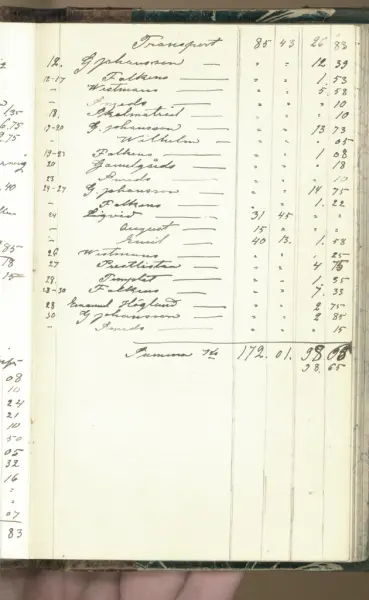 Transport 85 43 26 83
12. G Johansson — " " 12 39
12-17 Falkens — " " 1. 53
" Westmans — " " 5. 58
" Smeds — " " " 10
18. Skolmatriel — " " " 10
17-20 G. Johansson — " " 13 73
" Wilhelm — " " " 05
19-21 Falkens — " " 1 08
20 Gamelgårds — " " " 18
23 Smeds — " " " 10
23-27 G Johansson — " " 14 75
" Falkens — " " 1. 22
24 Liqvid — 31 45 " "
" August — 15 " " "
" Emil — 40 13. 1. 58
26 Westmans — " " " 25
27 — " " 4
29. — " " 1. 35
28-30 Falkens — " " 7. 33
28 Emanuel Höglund — " " 2 75
30 G Johansson — " " 2 85
" Smeds — " " " 15
Summa 172. 01. 98 65
98. 65
135
6.75
2.75
40
85
18
15
08
10
24
21
10
50
05
32
16
"
"
07
83